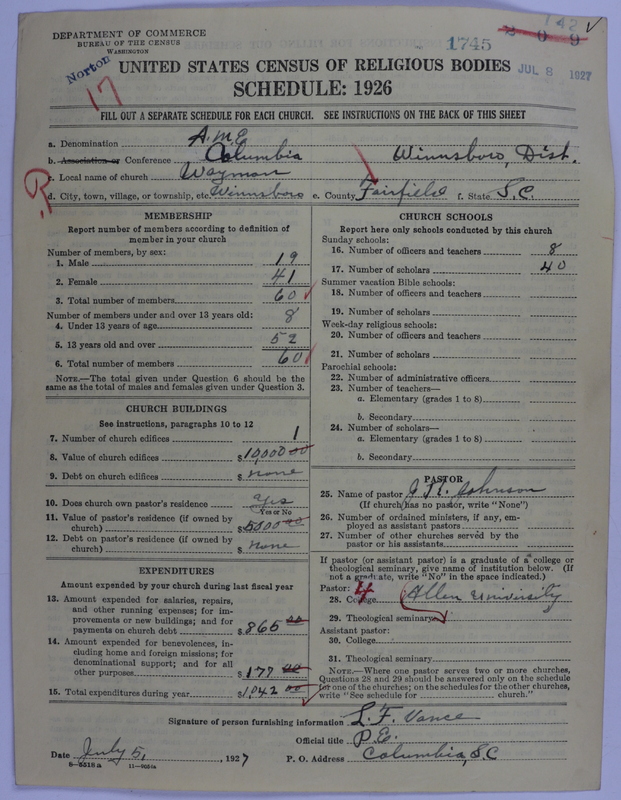 DEPARTMENT OF COMMERCE
BUREAU OF THE CENSUS
WASHINGTON
142 ✓
1745 209
Norton
JUL 8 1927
17
UNITED STATES CENSUS OF RELIGIOUS BODIES
SCHEDULE: 1926
FILL OUT A SEPARATE SCHEDULE FOR EACH CHURCH. SEE INSTRUCTIONS ON THE BACK OF THIS SHEET
a. Denomination A.M.E.
b. Association or Conference Columbia Winnsboro, Dist.
c. Local name of church Wayman
R
d. City, town, village, or township, etc. Winnsboro e. County Fairfield f. State S.C.
MEMBERSHIP
Report number of members according to definition of
member in your church
Number of members, by sex:
1. Male 19
2. Female 41
3. Total number of members 60
Number of members under and over 13 years old:
4. Under 13 years of age 8
5. 13 years old and over 52
6. Total number of members 60
NOTE.—The total given under Question 6 should be the
same as the total of males and females given under Question 3.
CHURCH BUILDINGS
See instructions, paragraphs 10 to 12
7. Number of church edifices 1
8. Value of church edifices $10,000 00
9. Debt on church edifices $ none
10. Does church own pastor's residence yes
Yes or No
11. Value of pastor's residence (if owned by
church) $5000 00
12. Debt on pastor's residence (if owned by
church) $ None
EXPENDITURES
Amount expended by your church during last fiscal year
13. Amount expended for salaries, repairs,
and other running expenses; for im-
provements or new buildings; and for
payments on church debt $865 00
14. Amount expended for benevolences, in-
cluding home and foreign missions; for
denominational support; and for all
other purposes $177 00
15. Total expenditures during year $1,042 00
CHURCH SCHOOLS
Report here only schools conducted by this church
Sunday schools:
16. Number of officers and teachers 8
17. Number of scholars 40
Summer vacation Bible schools:
18. Number of officers and teachers
19. Number of scholars
Week-day religious schools:
20. Number of officers and teachers
21. Number of scholars
Parochial schools:
22. Number of administrative officers
23. Number of teachers—
a. Elementary (grades 1 to 8)
b. Secondary
24. Number of scholars—
a. Elementary (grades 1 to 8)
b. Secondary
PASTOR
25. Name of pastor Johnson
(If church has no pastor, write "None")
26. Number of ordained ministers, if any, em-
ployed as assistant pastors
27. Number of other churches served by the
pastor or his assistants
If pastor (or assistant pastor) is a graduate of a college or
theological seminary, give name of institution below. (If
not a graduate, write "No" in the space indicated.)
Pastor: 4
28. College Allen University
29. Theological seminary
Assistant pastor:
30. College
31. Theological seminary
NOTE.—Where one pastor serves two or more churches,
Questions 28 and 29 should be answered only on the schedule
for one of the churches; on the schedules for the other churches,
write "See schedule for church."
Signature of person furnishing information L. F. Vance
Official title P.E.
Date July 5, 1927 P. O. Address Columbia, S.C
8-5518a 11-9064a